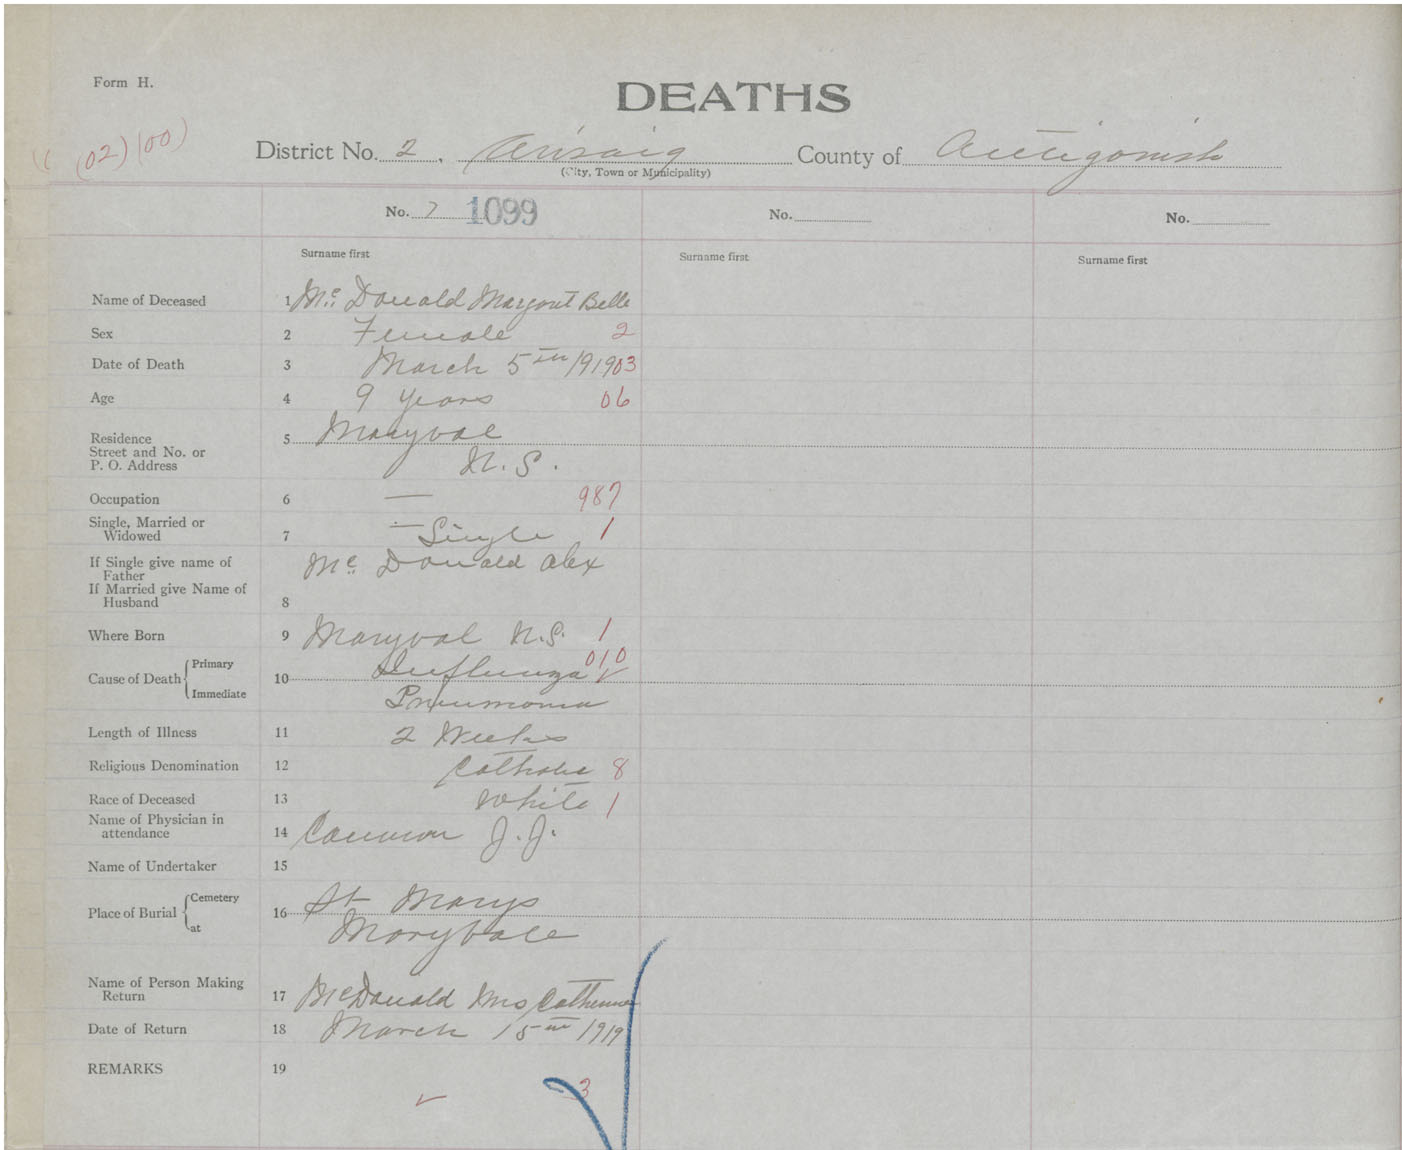 Form H.
DEATHS
(02) (00)
District No. 2. Arisaig County of Antigonish
(City, Town or Municipality)
No. 7 1099 No. No.
Surname first Surname first Surname first
Name of Deceased 1 Mc. Donald Margaret Belle
Sex 2 Female 2
Date of Death 3 March 5th 1919 03
Age 4 9 Years 06
Residence
Street and No. or
P. O. Address 5 Maryval
N. S.
Occupation 6 — 987
Single, Married or
Widowed 7 Single 1
If Single give name of
Father
If Married give Name of
Husband 8 Mc. Donald Alex
Where Born 9 Maryval N.S. 1
Cause of Death Primary 10 Influenza 010
Immediate Pneumonia
Length of Illness 11 2 Weeks
Religious Denomination 12 Catholic 8
Race of Deceased 13 White 1
Name of Physician in
attendance 14 Cameron J. J.
Name of Undertaker 15
Place of Burial Cemetery 16 St Marys
at Maryvale
Name of Person Making
Return 17 McDonald Mrs Catherine
Date of Return 18 March 15th 1919
REMARKS 19
3